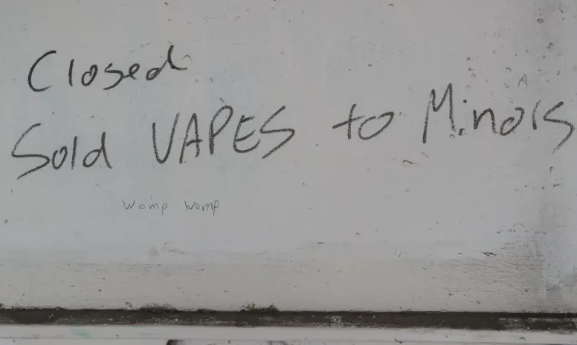 Closed
Sold VAPES to Minors
Womp Womp